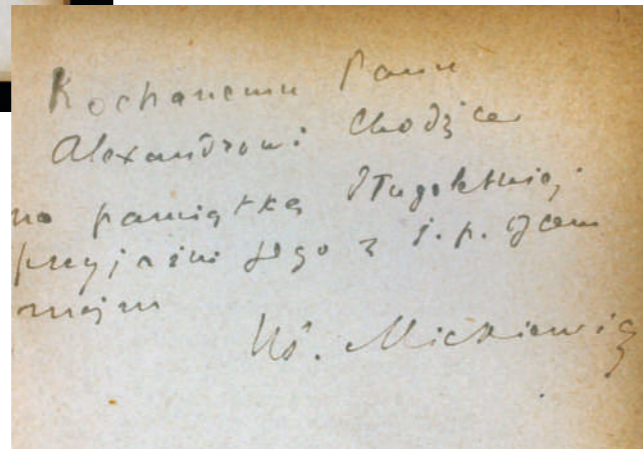 Kochanemu Panu
Alexandrowi Chodźce
na pamiątkę długoletniej
przyjaźni Jego z ś. p. Ojcem
moim
Wł. Mickiewicz